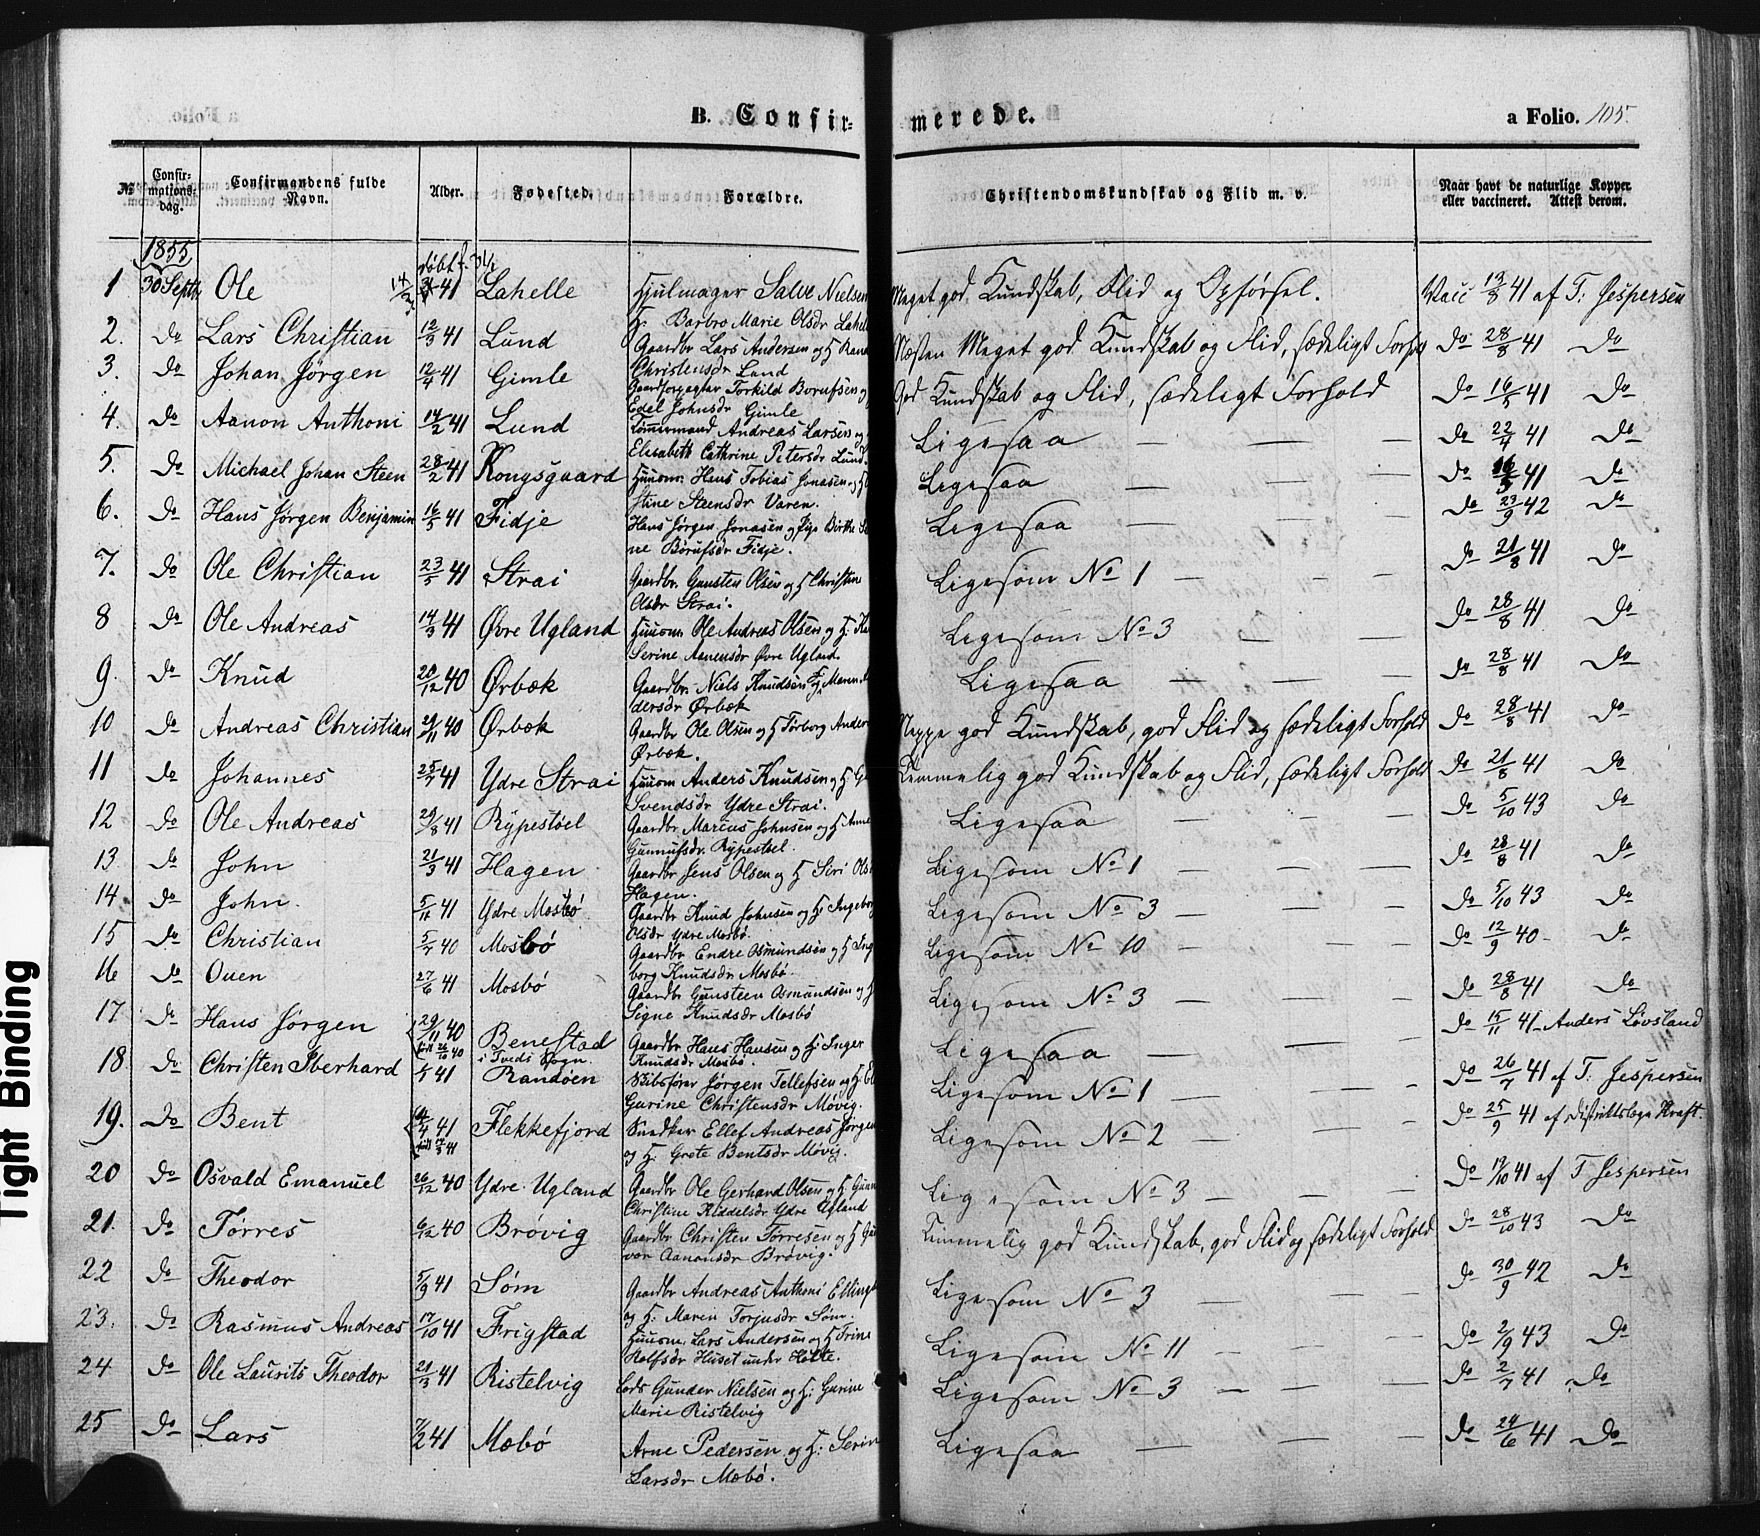 B. Confir-
merede.
a Folio. 105.
№
Confir-
mations-
dag.
Confirmandens fulde
Navn.
Alder.
Fødested.
Forældre.
Christendomskundskab og Flid m. v.
Naar havt de naturlige Kopper
eller vaccineret. Attest derom.
1855
døbt
1 30 Septb Ole 41 Lahelle Hjulmager Salve Nielsen Meget god Kundskab, Flid og Opførsel. Vacc 13/8 41 af T: Jespersen
H. Barbro Marie Olsdr Lahelle
2. do Lars Christian 12/3 41 Lund Gaardbr Lars Andersen og H Næsten Meget god Kundskab og Flid, sædeligt Forhold do 28/8 41 do
Christensdr Lund
3. do Johan Jørgen 12/4 41 Gimle Gaardforpagter Torkild Borufsen og God Kundskab og Flid, sædeligt Forhold do 16/5 41 do
Edel Johnsdr Gimle
4. do Aanon Anthoni 14/2 41 Lund Tømmermand Andreas Larsen og Ligesaa — — — do 22/4 41 do
Elisabeth Cathrine Petersdr Lund.
5. do Michael Johan Steen 28/2 41 Kongsgaard Huusm. Hans Tobias Jonasen og H Ligesaa — — — do 16/5 41 do
Stine Steensdr Varen.
6. do Hans Jørgen Benjamin 16/5 41 Fidje Hans Jørgen Jonasen og Pige Birthe Ligesaa — — — do 23/9 42 do
ne Børufsdr Fidje.
7. do Ole Christian 23/5 41 Strai Gaardbr. Gunsten Olsen og H Christine Ligesom No 1 — — — do 21/8 41 do
Olsdr Strai.
8 do Ole Andreas 14/3 41 Øvre Ugland Huusm. Ole Andreas Olsen og H: Ligesom No 3 — — do 28/8 41 do
Serine Aanensdr Øvre Ugland.
9. do Knud 20/12 40 Ørbæk Gaardbr. Niels Knudsen og H. Maren Ligesaa — — — do 28/8 41 do
dersdr Ørbæk
10 do Andreas Christian 29/11 40 Ørbæk Gaardbr Ole Olsen og H Torborg Anders Neppe god Kundskab, god Flid og sædeligt Forhold do 28/8 41 do
Ørbæk.
11 do Johannes 25/7 41 Ydre Strai Huusm Anders Knudsen og H Temmelig god Kundskab og Flid, sædeligt Forhold do 21/8 41 do
Svendsdr Ydre Strai.
12 do Ole Andreas 29/8 41 Rypestøel Gaardbr Marcus Johnsen og H. Anne Ligesaa — — — do 5/10 43 do
Gunnufsdr. Rypestøel.
13. do John 21/3 41 Hagen Gaardbr Jens Olsen og H Siri Olsdr Ligesom No 1 — — — do 28/8 41 do
Hagen.
14 do John. 5/11 41 Ydre Mosbø Gaardbr Knud Johnsen og H: Ingeborg Ligesom No 3 — — — do 5/10 43 do
Olsdr Ydre Mosbø.
15 do Christian 5/7 40 Mosbø Gaardbr Endre Osmundsen og H Inge Ligesom No 10 — — — do 12/9 40 - do
borg Knudsdr Mosbø.
16 do Ouen 27/6 41 Mosbø Gaardbr Gunsteen Osmundsen og H Ligesom No 3 — — — do 28/8 41 do
Signe Knudsdr Mosbø
17 do Hans Jørgen 29/11 40 Benestad Gaardbr Hans Hansen og H: Inger Ligesaa — — — do 15/11 41 Anders Løvsland
i Tveds Sogn. Knudsdr Mosbø.
18. do Christen Iberhard 41 Randøen Bibsfører Jørgen Tellefsen og H. Ligesom No 1 — — — do 26/7 41 af T: Jespersen
Gurine Christensdr Møvig.
19. do Bent 41 Flekkefjord Snedker Ellef Andreas Jørgen Ligesom No 2 — — — do 25/9 41 af Distriktslæge Kraft.
og H. Grete Bentsdr Møvig.
20 do Osvald Emanuel 26/12 40 Ydre Ugland Gaardbr Ole Gerhard Olsen og H Ligesom No 3 — — — do 19/10 41 af T Jespersen
Christine Reddelsdr Ydre Ugland
21. do Tørres 6/12 40 Brøvig Gaardbr Christen Tørresen og H Gun Temmelig god Kundskab, god Flid og sædeligt Forhold do 28/10 43 do
vor Aanonsdr Brøvig.
22 do Theodor 5/9 41 Søm Gaardbr Andreas Anthoni Ellings Ligesom No 3 — — — do 30/9 42 do
og H. Maren Torjusdr Søm.
23. do Rasmus Andreas 17/10 41 Frigstad Huusm. Lars Andersen og H Trine Ligesom No 11 — — do 2/9 43 do
Rolfsdr Huset under Holte.
24 do Ole Laurits Theodor 21/3 41 Ristelvig Lods Gunder Nielsen og H: Gurine Ligesom No 3 — — — do 2/7 41 do
Marie Ristelvig
25 do Lars 7/2 41 Mæbø Arne Pedersen og H: Serine Ligesaa — — — do 24/6 41 do
Larsdr Mæbø.
Tight Binding